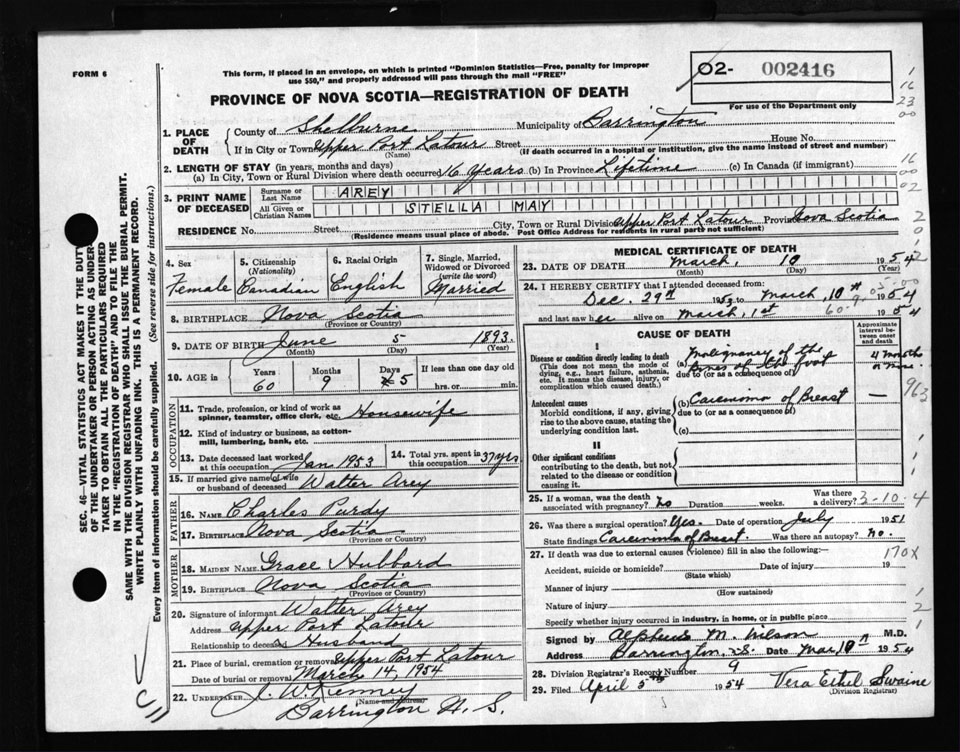 FORM 6
This form, if placed in an envelope, on which is printed "Dominion Statistics—Free, penalty for improper
use $50," and properly addressed will pass through the mail "FREE"
02- 002416
For use of the Department only
PROVINCE OF NOVA SCOTIA—REGISTRATION OF DEATH
1. PLACE OF DEATH
County of Shelburne Municipality of Barrington
If in City or Town Upper Port Latour Street House No.
(Name) (If death occurred in a hospital or institution, give the name instead of street and number)
2. LENGTH OF STAY (in years, months and days)
(a) In City, Town or Rural Division where death occurred 16 Years (b) In Province Lifetime (c) In Canada (if immigrant)
3. PRINT NAME OF DECEASED
Surname or Last Name AREY
All Given or Christian Names STELLA MAY
RESIDENCE No. Street City, Town or Rural Division Upper Port Latour Province Nova Scotia
(Residence means usual place of abode. Post Office Address for residents in rural parts not sufficient)
4. Sex Female
5. Citizenship (Nationality) Canadian
6. Racial Origin English
7. Single, Married, Widowed or Divorced (write the word) Married
8. BIRTHPLACE Nova Scotia
(Province or Country)
9. DATE OF BIRTH June 5 1893
(Month) (Day) (Year)
10. AGE in Years 60 Months 9 Days 5 If less than one day old hrs. or min.
OCCUPATION
11. Trade, profession, or kind of work as spinner, teamster, office clerk, etc. Housewife
12. Kind of industry or business, as cotton-mill, lumbering, bank, etc.
13. Date deceased last worked at this occupation Jan 1953
14. Total yrs. spent in this occupation 37 yrs
15. If married give name of wife or husband of deceased Walter Arey
FATHER
16. Name Charles Purdy
17. Birthplace Nova Scotia
(Province or Country)
MOTHER
18. MAIDEN NAME Grace Hubbard
19. BIRTHPLACE Nova Scotia
(Province or Country)
20. Signature of informant Walter Arey
Address Upper Port Latour
Relationship to deceased Husband
21. Place of burial, cremation or removal Upper Port Latour
Date of burial or removal March 14, 1954
22. UNDERTAKER J. W. Kenney
(Name and address)
Barrington N. S.
MEDICAL CERTIFICATE OF DEATH
23. DATE OF DEATH March, 10 1954
(Month) (Day) (Year)
24. I HEREBY CERTIFY that I attended deceased from:
Dec. 29th 1953 to March, 10th 1954
and last saw her alive on March, 1st 1954
CAUSE OF DEATH
Approximate interval between onset and death
I
Disease or condition directly leading to death
(This does not mean the mode of dying, e.g., heart failure, asthenia, etc. It means the disease, injury, or complication which caused death.)
(a) Malignancy of the bones of the foot
due to (or as a consequence of)
4 months or more
Antecedent causes
Morbid conditions, if any, giving rise to the above cause, stating the underlying condition last.
(b) Carcinoma of Breast —
due to (or as a consequence of)
(c)
II
Other significant conditions
contributing to the death, but not related to the disease or condition causing it.
963
25. If a woman, was the death associated with pregnancy? No Duration weeks. Was there a delivery?
3-10-4
26. Was there a surgical operation? Yes. Date of operation July 1951
State findings Carcinoma of Breast. Was there an autopsy? no.
27. If death was due to external causes (violence) fill in also the following:—
170X
Accident, suicide or homicide? Date of injury 19
(State which)
Manner of injury
(How sustained)
Nature of injury
Specify whether injury occurred in industry, in home, or in public place
Signed by Alpheus M. Wilson M.D.
Address Barrington, N.S. Date Mar. 10th 1954
28. Division Registrar's Record Number 9
29. Filed April 5th 1954 Vera Ethel Swaine
(Division Registrar)
SEC. 46—VITAL STATISTICS ACT MAKES IT THE DUTY
OF THE UNDERTAKER OR PERSON ACTING AS UNDER-
TAKER TO OBTAIN ALL THE PARTICULARS REQUIRED
IN THE "REGISTRATION OF DEATH" AND TO FILE THE
SAME WITH THE DIVISION REGISTRAR WHO SHALL ISSUE THE BURIAL PERMIT.
WRITE PLAINLY WITH UNFADING INK. THIS IS A PERMANENT RECORD.
Every item of information should be carefully supplied. (See reverse side for instructions.)